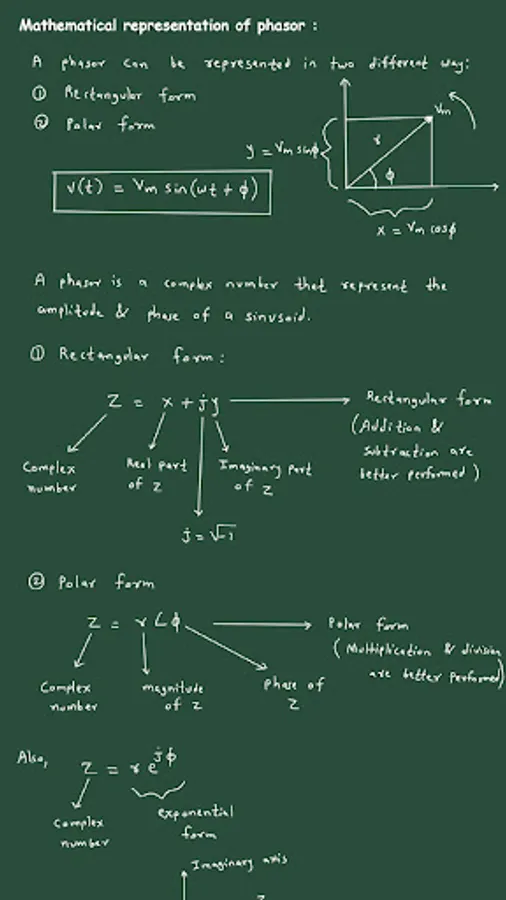 Mathematical representation of phasor :
A phasor can be represented in two different way:
① Rectangular form
② Polar form
Vm
y = Vm sinϕ
r
ϕ
v(t) = Vm sin(ωt + ϕ)
x = Vm cosϕ
A phasor is a complex number that represent the
amplitude & phase of a sinusoid.
① Rectangular form :
Z = x + jy
Rectangular form
(Addition &
subtraction are
better performed)
Complex
number
Real part
of Z
Imaginary part
of Z
j = √-1
② Polar form
Z = r∠ϕ
Polar form
(Multiplication & division
are better performed)
Complex
number
magnitude
of Z
phase of
Z
Also,
Z = r e^jϕ
Complex
number
exponential
form
Imaginary axis